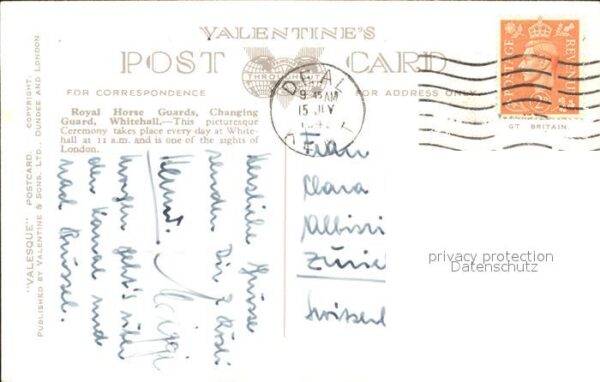 VALENTINE'S
POST CARD
THROUGHOUT
FOR CORRESPONDENCE
FOR ADDRESS ONLY
Royal Horse Guards, Changing
Guard, Whitehall.—This picturesque
Ceremony takes place every day at White-
hall at 11 a.m. and is one of the sights of
London.
"VALESQUE" POSTCARD. COPYRIGHT.
PUBLISHED BY VALENTINE & SONS, LTD., DUNDEE AND LONDON.
DEAL
9 45 AM
15 JLY
POSTAGE REVENUE
GT BRITAIN.
Herzliche Grüsse
senden Dir
Morgen geht's über
den Kanal und
nach Brüssel.
Frau
Clara
Zürich
Switzerl
privacy protection
Datenschutz